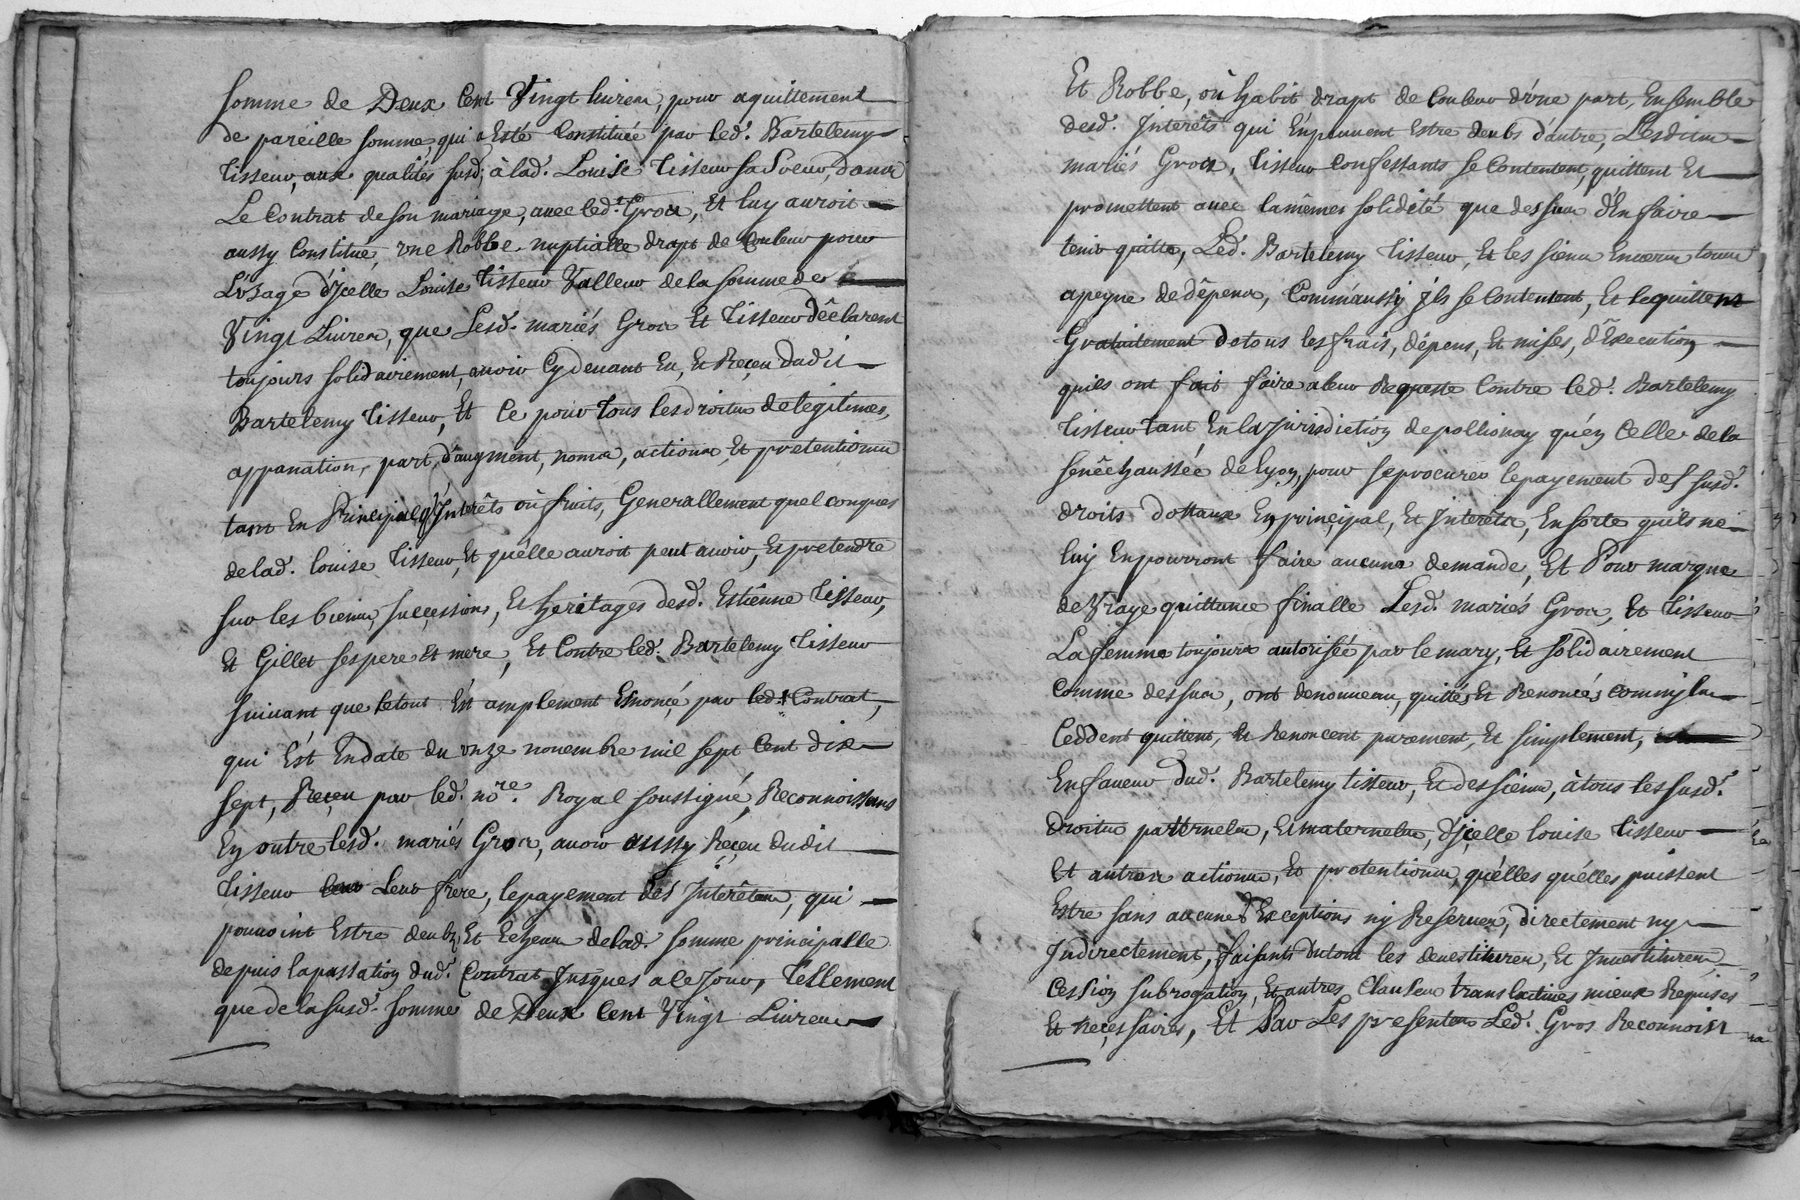 somme de Deux Cent Vingt livres, pour aquittement
de pareille somme, qui a Esté Constituée par led. Bartelemy
Tisseur, aux qualités susd. à lad. Louise Tisseur sa Soeur, dans
Le Contrat de son mariage, avec led. Gros, Et luy auroit
aussy Constitué, une Robbe nuptialle drapt de Couleur pour
L'uzage d'Jcelle Louise Tisseur Valleur de la somme de
Vingt Livres, que Lesd. mariés Gros Et Tisseur dêclarent
toujours solidairement, avoir Cy devant Eu, Et Reçeu dudit
Bartelemy Tisseur, Et Ce pour Tous les droitus de legitimes,
appanation, part, d'augment, noms, actions, Et pretentions
tant En Principal, Jnterêts où fruits, Generallement quelconques
de lad. louise Tisseur, Et qu'elle auroit peut avoir, Et pretendre
sur les biens, successions, Et heritages desd. Estienne Tisseur,
Et Gillet ses pere Et mere, Et Contre led. Bartelemy Tisseur
suivant que le tout Est amplement Enoncé, par led. Contrat,
qui Est En date du onze novembre mil sept Cent dix
sept, Reçeu par led. nore. Royal soussigné, Reconnoissans
En outre lesd. mariés Gros, avoir aussy Reçeu dudit
Tisseur Leur frere, le payement des Jnterêts, qui
pouvoint Estre deubs, Et Echeus de lad. somme principalle
depuis la passation dud. Contrat Jusques a ce Jour, Tellement
que de la susd. somme de Deux Cent Vingt Livres
Et Robbe, où habit drapt de Couleur d'une part, Ensemble
desd. Jnterêts qui En peuvent Estre deubs d'autre, Lesdits
mariés Gros, Tisseur Confessants se Contentent, quittent Et
promettent avec la mêmes solidité que dessus d'En faire
tenir quitte, Led. Bartelemy Tisseur, Et les siens Envers tous
a peyne de dêpens, Comm'aussy jls se Contentent, Et le quittent
Gratuitement de tous les frais, dépens, Et mises, d'Execution
quils ont fait faire a leur Requeste Contre led. Bartelemy
Tisseur Tant En la Jurisdiction de pollionay qu'en Celle de la
senêchaussée de Lyon, pour se procurer le payement des susd.
droits dottaux En principal, Et Jnterêts, En sorte quils ne
luy En pourront faire aucune demande, Et Pour marque
de Vraye quittance finalle Lesd. mariés Gros, Et Tisseur
La femme toujours autorisée par le mary, Et solidairement
Comme dessus, ont denouveau, quittés Et Renoncés comm'jls
Ceddent quittent, Et Renoncent purement, Et simplement,
En faveur dud. Bartelemy Tisseur, Et des siens, à tous les susd.
droitus paternels, Et maternels, d'jcelle louise Tisseur
Et autres actions, Et pretentions, qu'elles qu'elles puissent
Estre sans aucunes Exceptions ny Reserves, directement ny
Jndirectement, faisants du tout les devestitures, Et Jnvestitures,
Cession subrogation, Et autres Clauses translatives mieux Requises
Et neçessaires, Et Par Les presentes Led. Gros Reconnoist